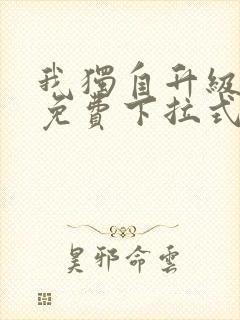 我獨自升級
免費下拉式
昊邪命雲